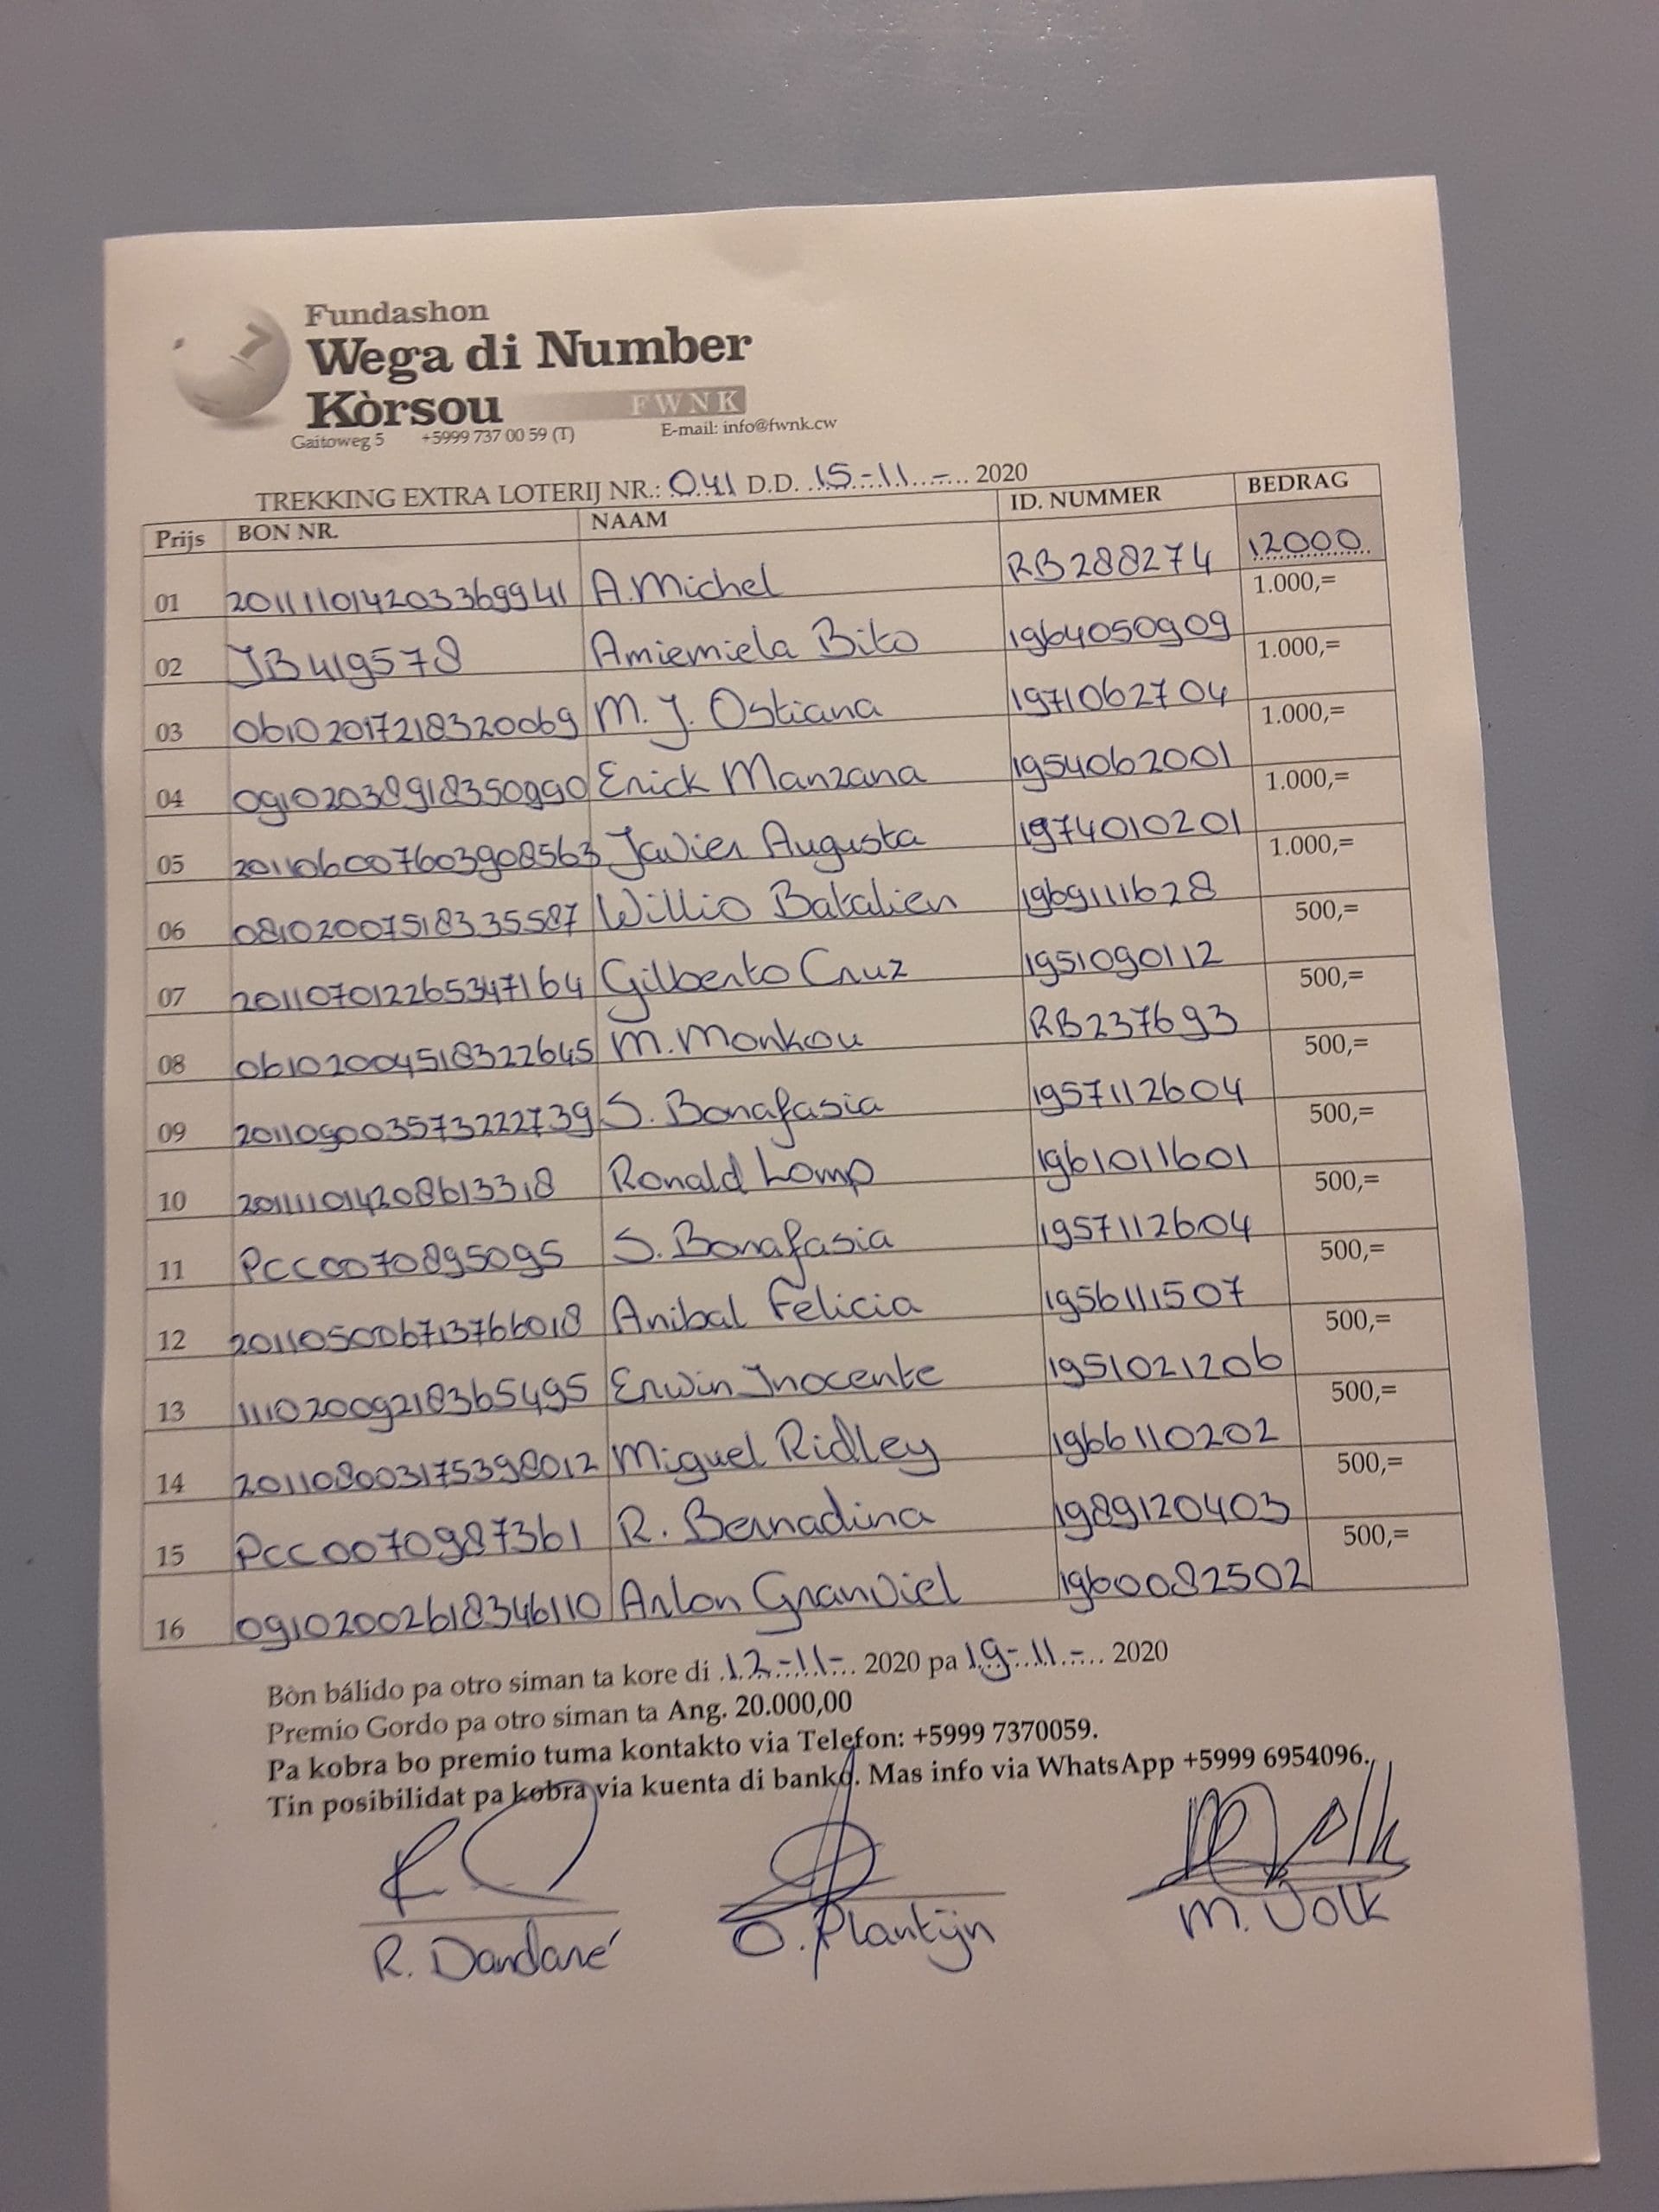 Fundashon
Wega di Number
Kòrsou FWNK
Gaitoweg 5 +5999 737 00 59 (T) E-mail: info@fwnk.cw
TREKKING EXTRA LOTERIJ NR.: 041 D.D. 15-11-... 2020
Prijs BON NR. NAAM ID. NUMMER BEDRAG
01 2011110142033369941 A.Michel RB288274 12000
02 JB419578 Amiemiela Bito 1964050909 1.000,=
03 06102017218320069 M. J. Ostiana 1971062704 1.000,=
04 09102038918350990 Erick Manzana 1954062001 1.000,=
05 201106007603908563 Javier Augusta 1974010201 1.000,=
06 08102007518335587 Willio Bakalien 1969111628 1.000,=
07 201107012265347164 Gilberto Cruz 1951090112 500,=
08 06102004518322645 M. Monkou RB237693 500,=
09 201109003573222739 S. Bonafasia 1957112604 500,=
10 201111014208613318 Ronald Lomp 1961011601 500,=
11 PCC0070895095 S. Bonafasia 1957112604 500,=
12 201105006713766018 Anibal Felicia 1956111507 500,=
13 11102009218365495 Erwin Inocente 1951021206 500,=
14 201108003175398012 Miguel Ridley 1966110202 500,=
15 PCC0070987361 R. Bernadina 1989120403 500,=
16 09102002618346110 Arlon Granviel 1960082502 500,=
Bòn bálido pa otro siman ta kore di .12-11-... 2020 pa 19-11-... 2020
Premio Gordo pa otro siman ta Ang. 20.000,00
Pa kobra bo premio tuma kontakto via Telefon: +5999 7370059.
Tin posibilidat pa kobra via kuenta di banko. Mas info via WhatsApp +5999 6954096.
R. Dandaré O. Plantijn M. Volk